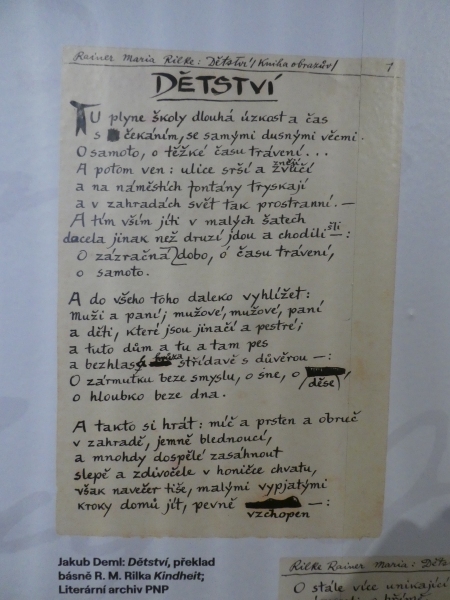 Rainer Maria Rilke: Dětství /Kniha obrazův/ 1
DĚTSTVÍ
TU plyne školy dlouhá úzkost a čas
s čekáním, se samými dusnými věcmi.
O samoto, o těžké času trávení...
A potom ven: ulice srší a zvučí
zněží
a na náměstích fontány tryskají
a v zahradách svět tak prostranní. —
A tím vším jíti v malých šatech
docela jinak než druzí jdou a chodili — :
šli
O zázračná dobo, ó času trávení,
o samoto.
A do všeho toho daleko vyhlížet:
Muži a paní; mužové, mužové, paní
a děti, které jsou jinačí a pestré;
a tuto dům a tu a tam pes
a bezhlasá střídavě s důvěrou — :
O zármutku beze smyslu, o sne, o
děse,
o hloubko beze dna.
A takto si hrát: míč a prsten a obruč
v zahradě, jemně blednoucí,
a mnohdy dospělé zasáhnout
slepě a zdivočele v honičce chvatu,
však navečer tiše, malými vypjatými
kroky domů jít, pevně — :
vzchopen
Jakub Deml: Dětství, překlad
básně R. M. Rilka Kindheit;
Literární archiv PNP
Rilke Rainer Maria: Děts
O stále více unikající